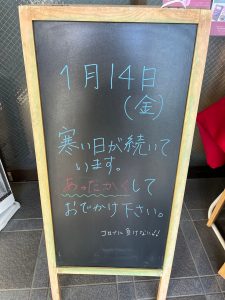 1月14日
(金)
寒い日が続いて
います。
あったかくして
おでかけ下さい。
コロナに負けない!!